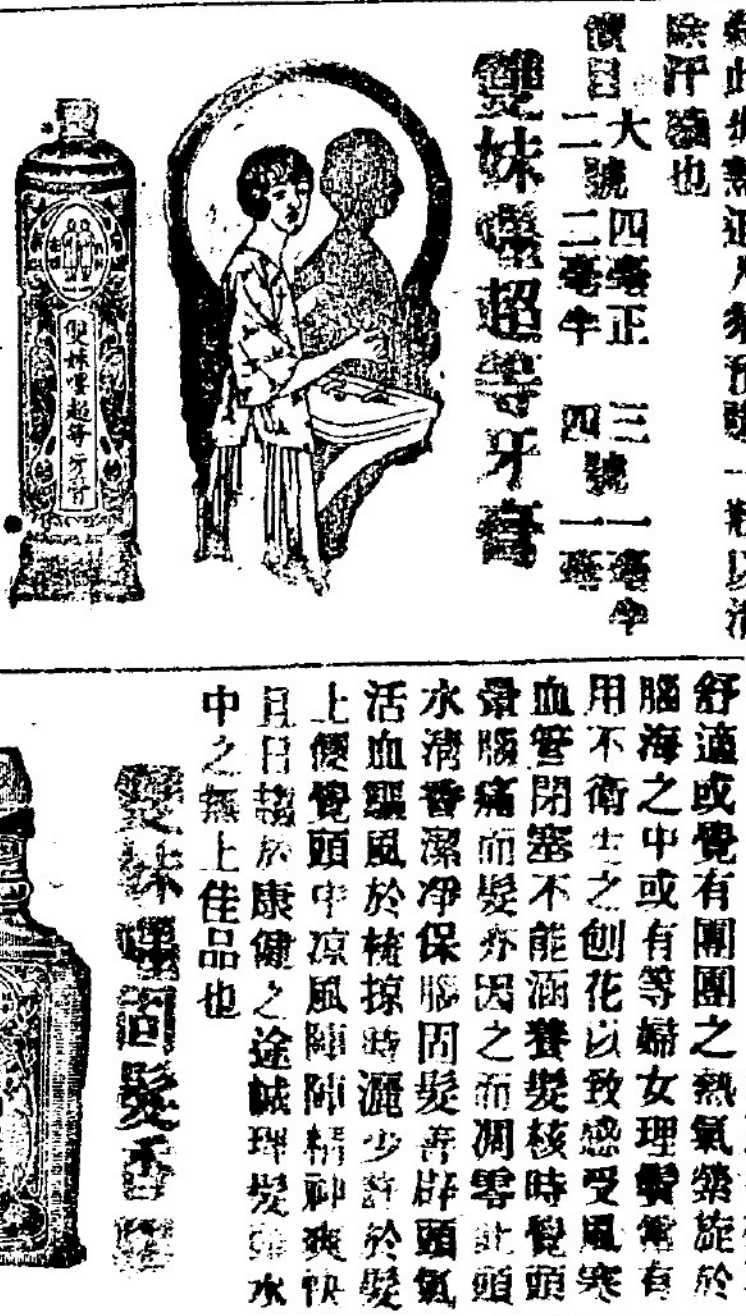 除汗也
價目 大號 四毫正 三號 一毫半
二號 二毫半 四號 一毫
雙妹嚜超等牙膏
雙妹嚜超等牙膏
舒適或覺有團團之熱氣縈旋於
腦海之中或有等婦女理鬢常有
用不衛生之刨花以致感受風寒
血管閉塞不能涵養髮核時覺頭
暈腦痛而髮亦因之而凋零此頭
水清香潔净保腦固髮善辟頭氣
活血驅風於梳掠時灑少許於髮
上便覺頭中凉風陣陣精神爽快
且日趨於康健之途誠理髮水
中之無上佳品也
雙妹嚜髮香